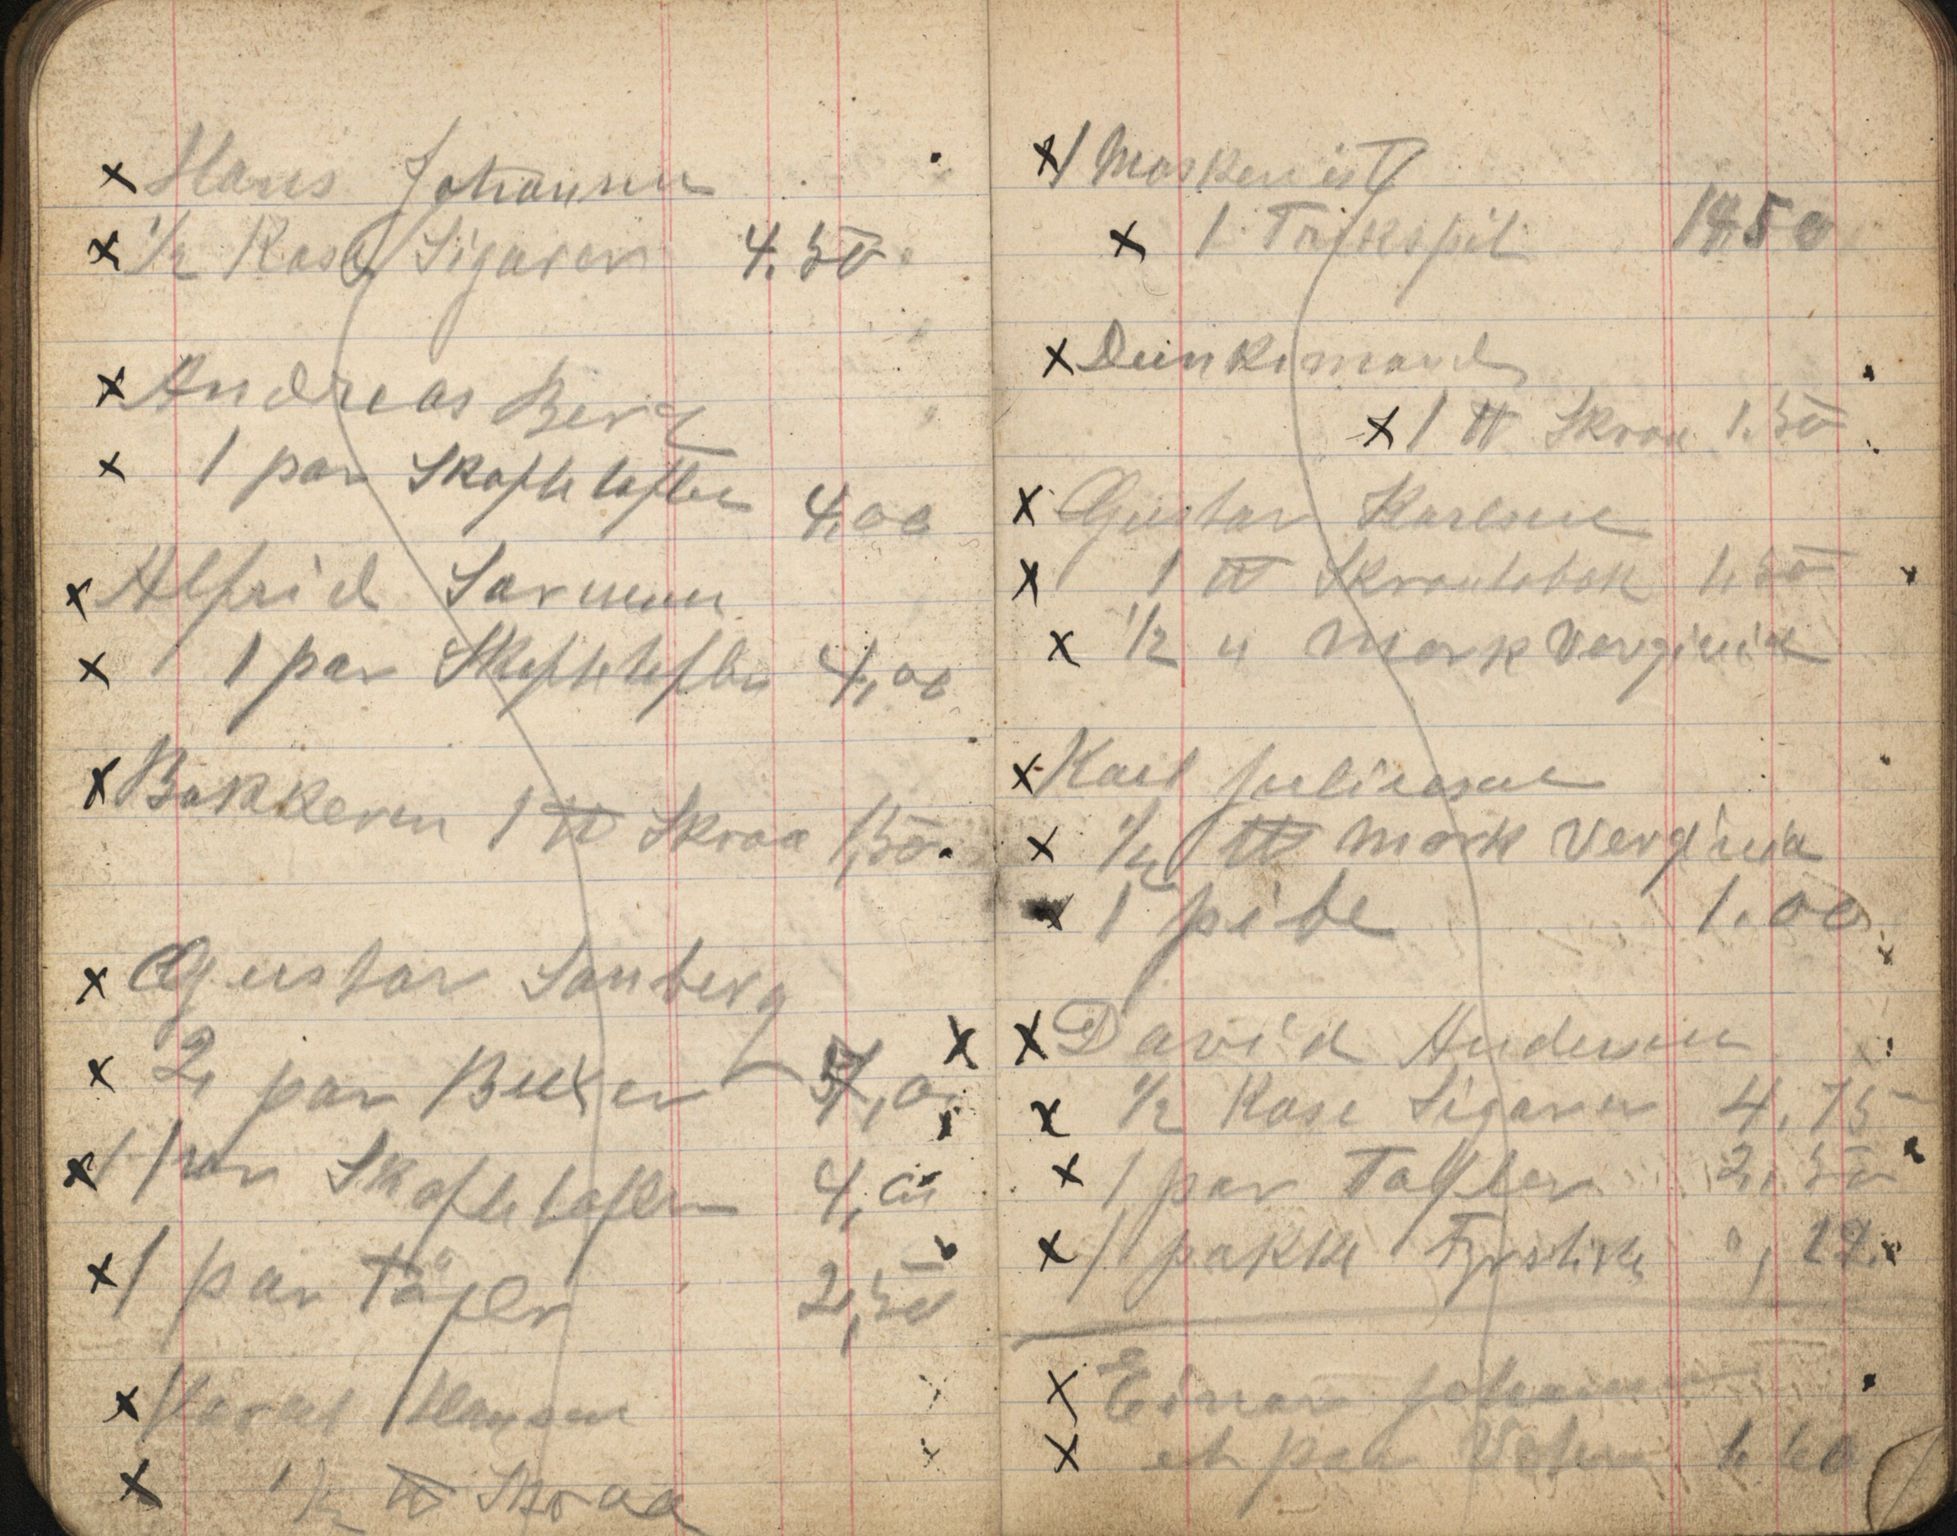 x Hans Johansen
x 1/2 Kase Sigarer 4.50
x Andreas Berg
x 1 par Skaftetøfler 4,00
x Alfrid
x 1 par Skaftetøfler 4,00
x Bakkeren 1 ℔ Skraa 1,50
x Gustav Sanberg
x 2 par Buxer
x 1 par Skaftetøfler 4,00
x 1 par Tøfler 2,50
x Harald Hansen
x 1/2 ℔ Skraa
x 1 Maskenist
x 1
x Dunkemand
x 1 ℔ Skraa 1.50
x Gustav Karlsen
x 1 ℔ Skraatobak 1,50
x 1/2 " Mork Verginia
x Karl Juliussen
x ℔ Mork Verginia
x 1 pibe 1.00
x David Andersen
x 1/2 Kase Sigarer 4,75
x 1 par Tøfler 2,50
x 1 pakke Fyrstik 0,12
x Einar Johansen
x et par